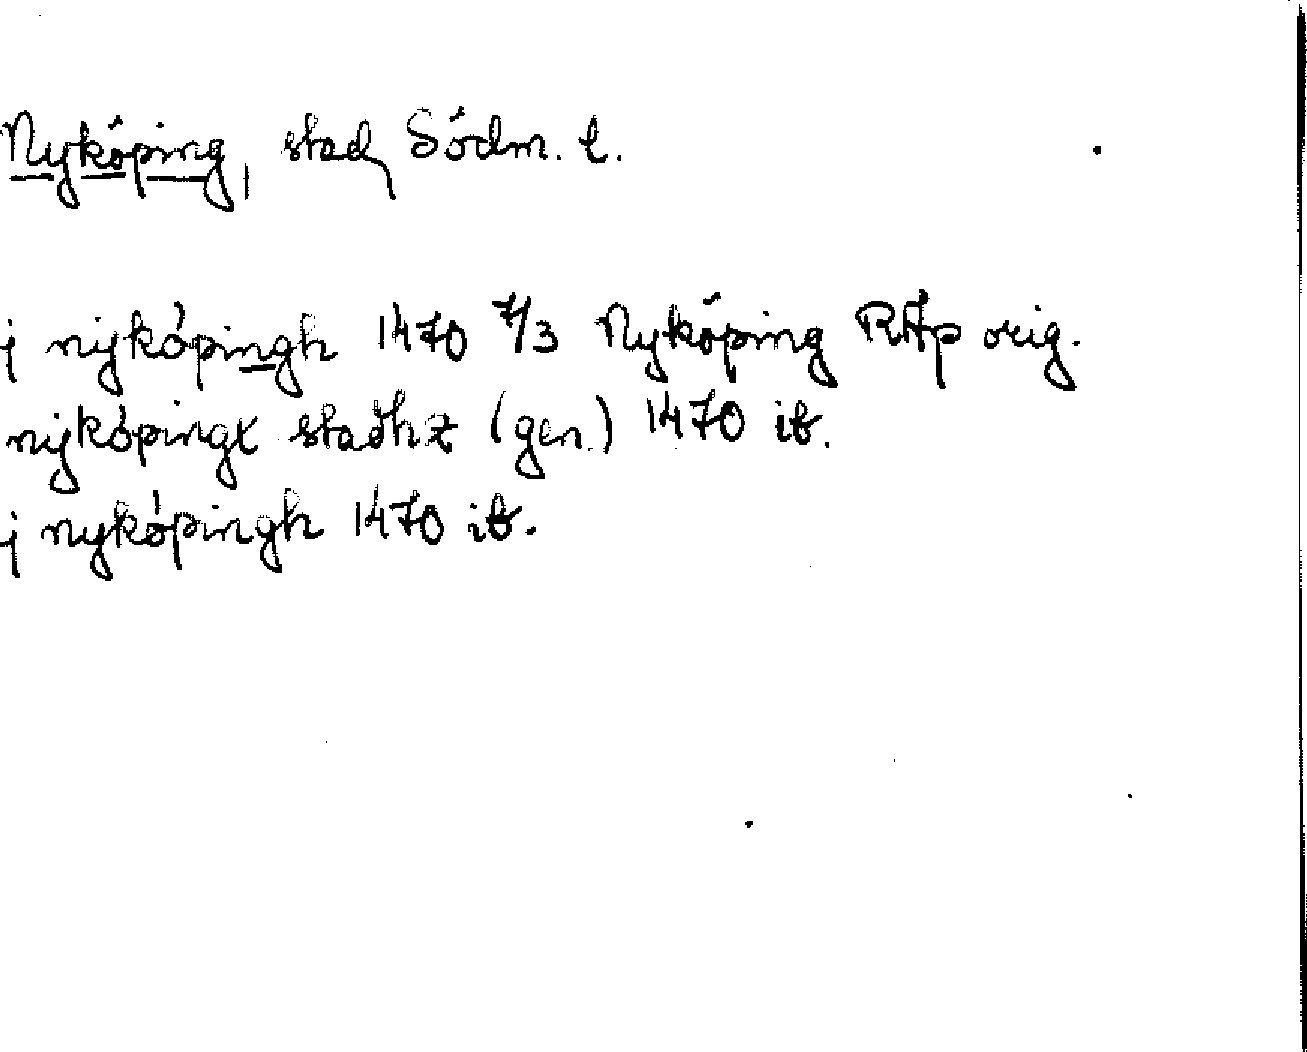 Nyköping, stad, Södm. l.
j nijköpingh 1470 7/3 Nyköping RAp orig.
nijköpingx stadhz (gen.) 1470 ib.
j nyköpingh 1470 ib.